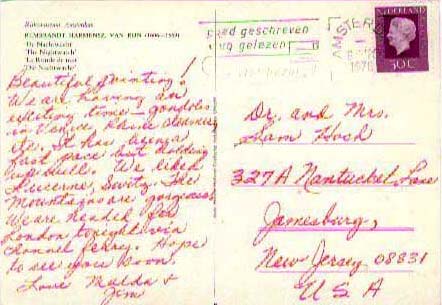 Rijksmuseum Amsterdam
REMBRANDT HARMENSZ. VAN RIJN (1606-1669)
De Nachtwacht
The Nightwatch
La Ronde de nuit
Die Nachtwache
Beautiful painting!
We are having an
exciting time - gondolas
in Venice, Rhine
etc. It has been a
fast pace but holding
up well. We liked
Lucerne, Switz. The
Mountains are gorgeous.
We are headed for
London tonight via
Channel ferry. Hope
to see you soon.
Love Malda &
Jim
goed geschreven
vlug gelezen
AMSTERDAM
1976
NEDERLAND
50c
Dr. and Mrs.
Sam Hoch
327A Nantucket Lane
Jamesburg,
New Jersey 08831
U.S.A